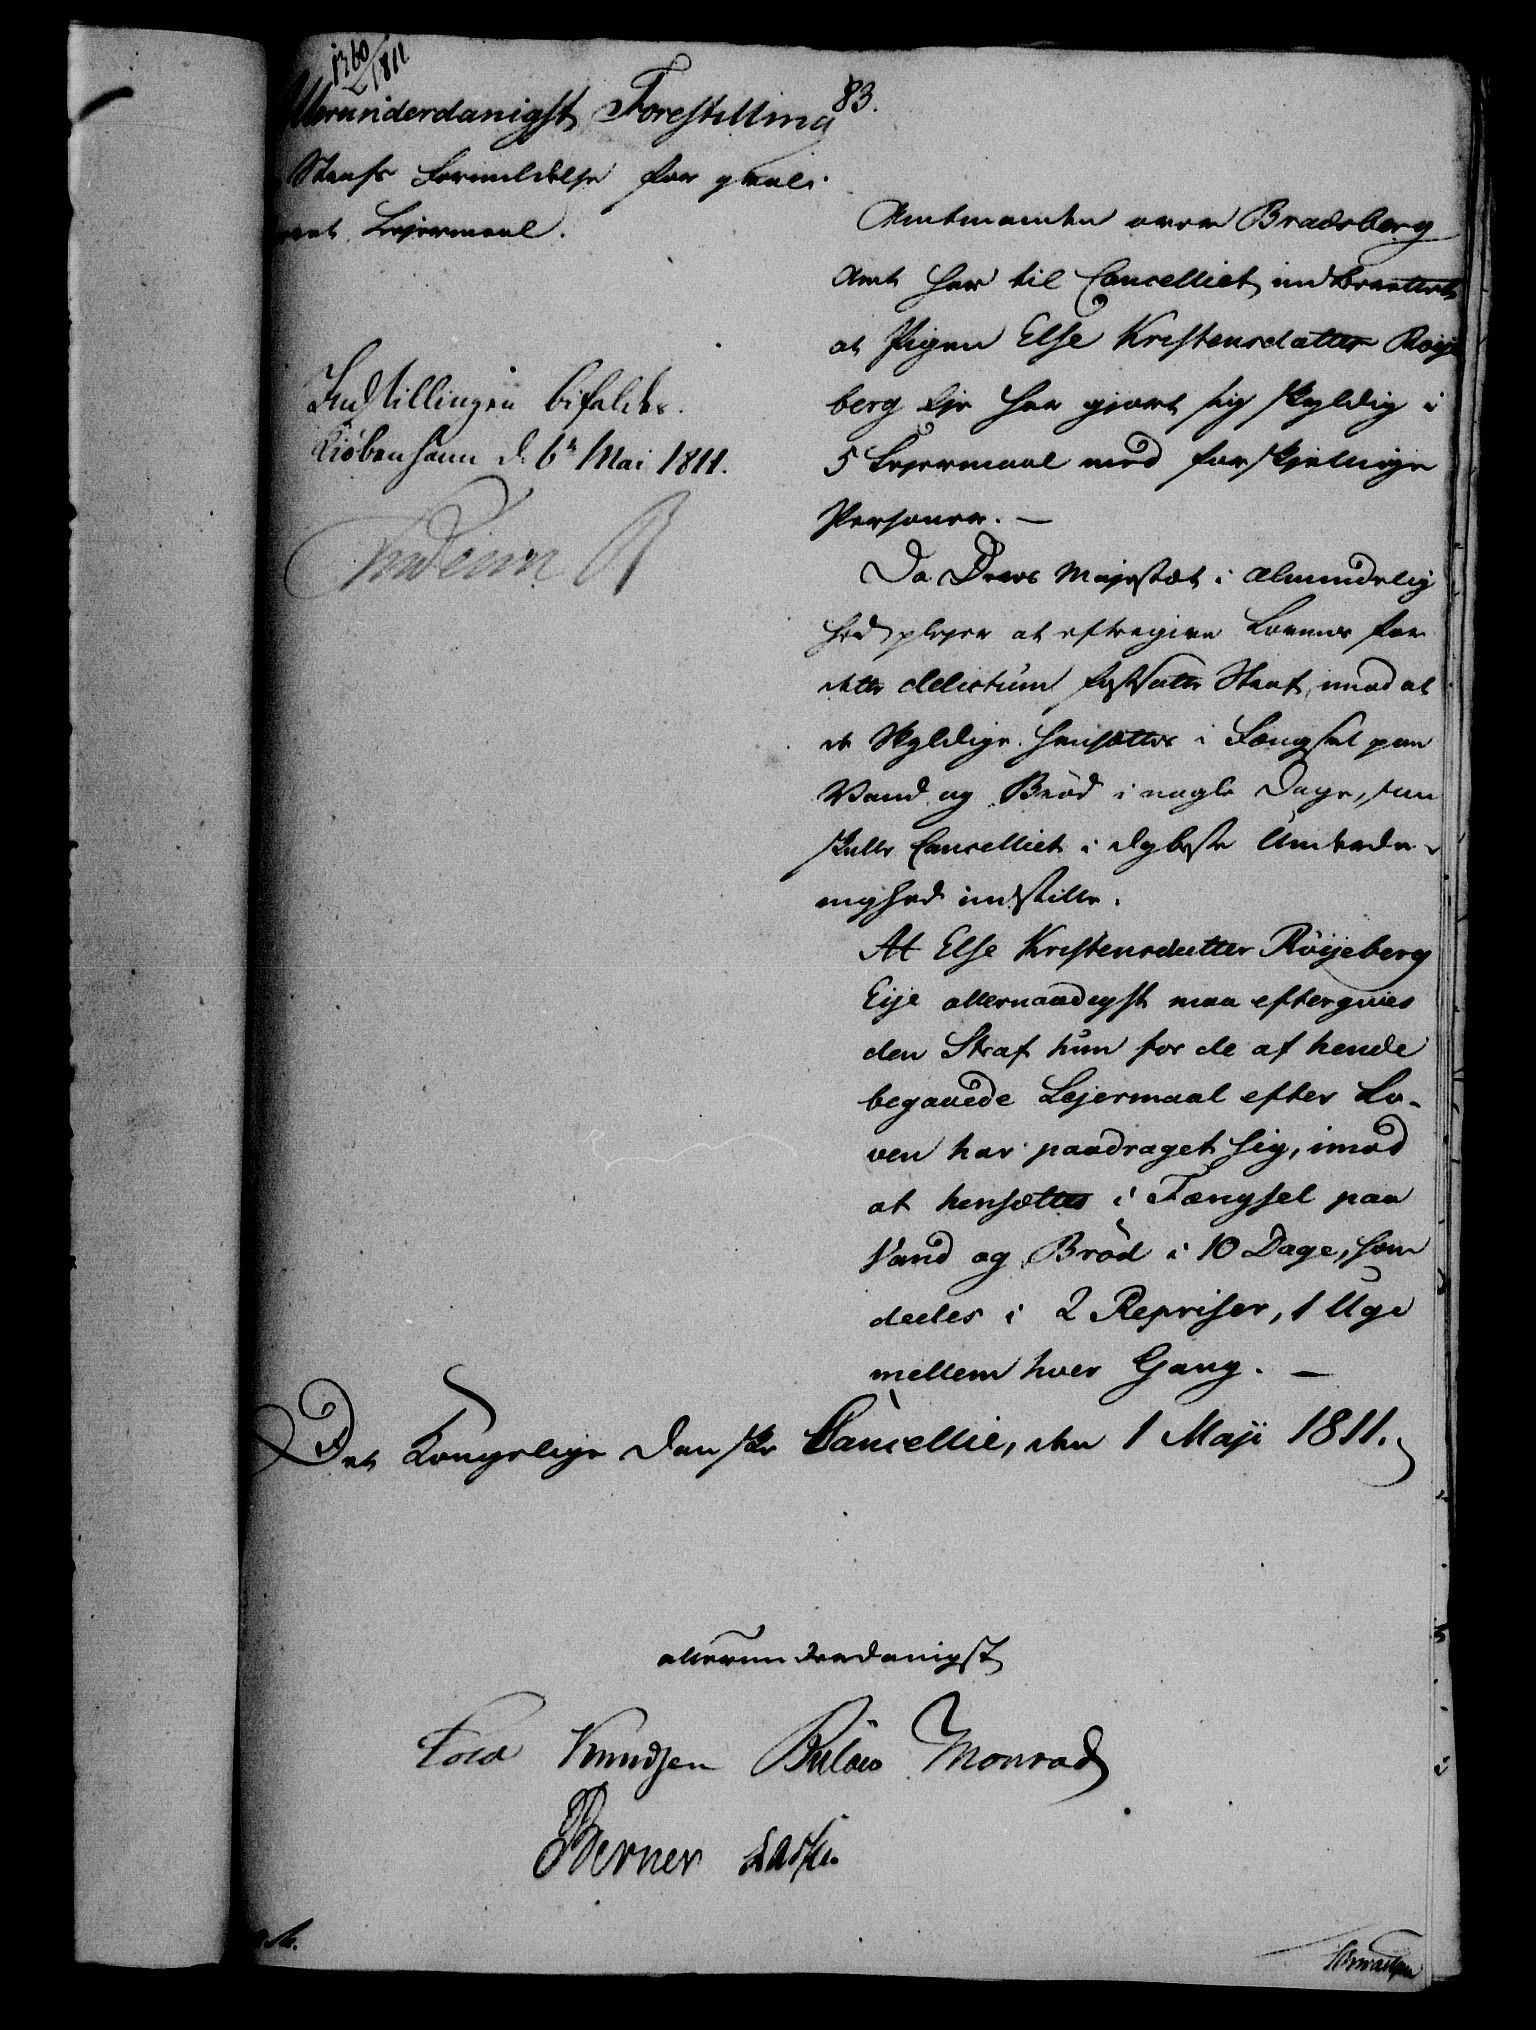 1360/1811
83.
Allerunderdanigst Forestilling
Strafs Formildelse for qvali-
ceret Lejermaal.
Indstillingen bifaldes.
Kiöbenhavn d. 6te Mai 1811.
Frederik R
Amtmanden over Bradsberg
Amt har til Cancelliet indberettet
at Pigen Else Kristensdatter Röije
berg Eje har gjort sig skyldig i
5 Lejermaal med forskjellige
Personer. —
Da Deres Majestæt i Almindelig
hed plejer at eftergive Lovens for
dette delictum fastsatte Straf, imod at
de Skyldige hensættes i Fængsel paa
Vand og Bröd i nogle Dage, saa
skulle Cancelliet i dybeste Underda-
nighed indstille.
At Else Kristensdatter Röijeberg
Eije allernaadigst maa eftergives
den Straf hun for de af hende
begaaede Lejermaal efter Lo-
ven har paadraget sig, imod
at hensættes i Fængsel paa
Vand og Bröd i 10 Dage, saa
ledes i 2 Repriser, 1 Uge
mellem hver Gang. —
Det Kongelige Danske Cancellie, den 1 Maji 1811.
allerunderdanigst
Knudsen Bülow Monrad
Berner Lassen